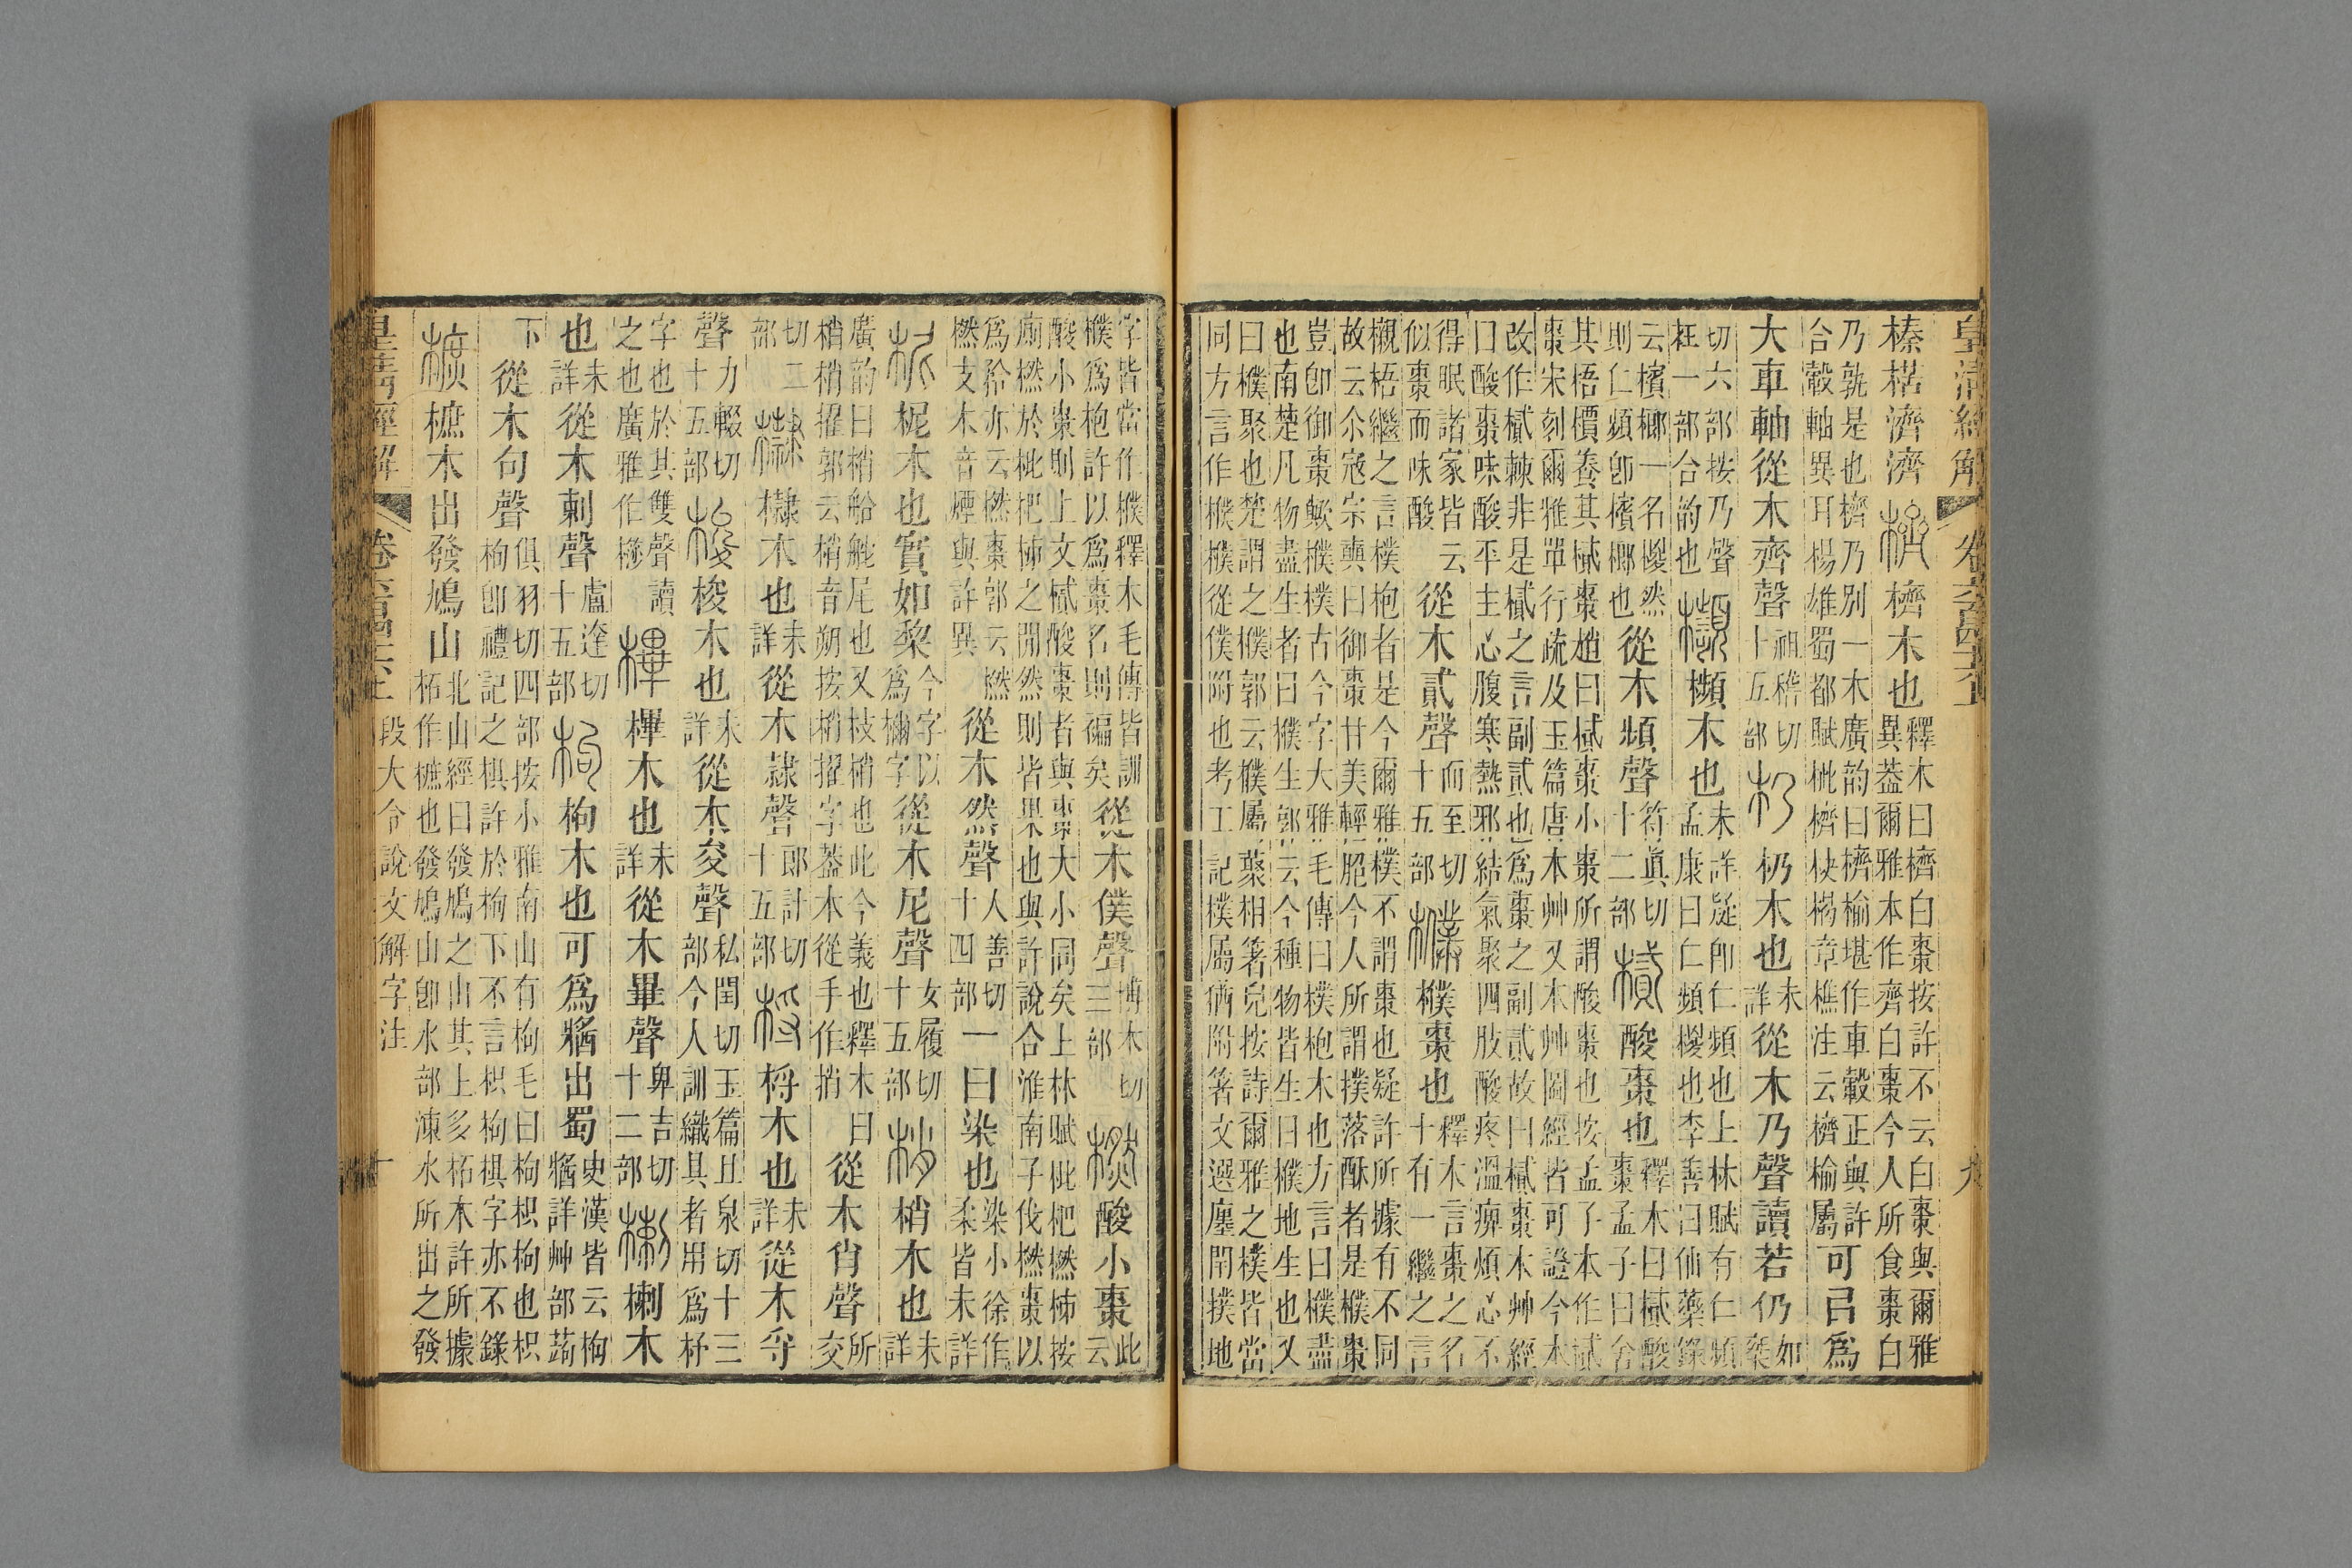 皇清經解 卷六百四十六上 九
榛楛濟濟 櫅木也 釋木曰櫅白棗按許不云白棗與爾雅異葢爾雅本作齊白棗今人所食棗白
乃孰是也櫅乃別一木廣韵曰櫅榆堪作車轂正與許合轂軸異耳楊雄蜀都賦枇櫅柍楬章樵注云櫅榆屬 可㠯爲
大車軸從木齊聲 祖稽切十五部 木也 未詳 從木乃聲讀若仍 如椉
切六部按乃聲在一部合韵也 櫇木也 未詳疑卽仁頻也上林賦有仁頻孟康曰仁頻㯶也李善曰仙藥錄
云檳榔一名㯶然則仁頻卽檳榔也 從木頻聲 符眞切十二部 樲 酸棗也 釋木曰樲酸棗孟子曰舍
其梧檟養其樲棗趙曰樲棗小棗所謂酸棗也按孟子本作樲棗宋刻爾雅單行疏及玉篇唐本艸又本艸圖經皆可證今本
改作樲棘非是樲之言副貳也爲棗之副貳故曰樲棗本艸經曰酸棗味酸平主心腹寒熱邪結氣聚四肢酸疼溫痹煩心不
得眠諸家皆云似棗而味酸 從木貳聲 而至切十五部 㯷 㯷棗也 釋木言棗之名十有一繼之言
櫬梧繼之言樸枹者是今爾雅樸不謂棗也疑許所據有不同故云尒寇宗奭曰御棗甘美輕脃今人所謂撲落酥者是㯷棗
豈卽御棗歟㯷樸古今字大雅毛傳曰樸枹木也方言曰㯷盡也南楚凡物盡生者曰㯷生郭云今種物皆生曰㯷地生也又
曰㯷聚也楚謂之㯷郭云㯷屬藂相著皃按詩爾雅之樸皆當同方言作㯷㯷從僕僕附也考工記樸屬猶附箸文選廛閈撲地
字皆當作㯷釋木毛傳皆訓㯷爲枹許以爲棗名則褊矣 從木僕聲 博木切三部 橪 酸小棗 此云
酸小棗則上文樲酸棗者與棗大小同矣上林賦枇杷橪柿按廁橪於枇杷柿之閒然則皆果也與許說合淮南子伐橪棗以
爲矜亦云橪棗郭云橪橪支木音煙與許異 從木然聲 人善切十四部 一曰染也 染小徐作柔皆未詳
柅 柅木也實如棃 今字以爲檷字 從木尼聲 女履切十五部 梢 梢木也 未詳
廣韵曰梢船舵尾也又枝梢也此今義也釋木曰梢梢擢郭云梢音朔按梢擢字葢本從手作捎 從木肖聲 所交
切二部 木也 未詳 從木隸聲 郎計切十五部 木也 未詳 從木寽
聲 力輟切十五部 梭 梭木也 未詳 從木夋聲 私閏切玉篇且泉切十三部今人訓織具者用爲杼
字也於其雙聲讀之也廣雅作 㮿 㮿木也 未詳 從木畢聲 卑吉切十二部 楋 楋木
也 未詳 從木剌聲 盧達切十五部 枸 枸木也可爲醬出蜀 史漢皆云枸醬詳艸部蒟
下 從木句聲 俱羽切四部按小雅南山有枸毛曰枸枳枸也枳枸卽禮記之椇許於枸下不言枳枸椇字亦不錄
樜 樜木出發鳩山 北山經曰發鳩之山其上多柘木許所據柘作樜也發鳩山卽水部涷水所出之發
皇清經解 卷六百四十六上 段大令說文解字注 十